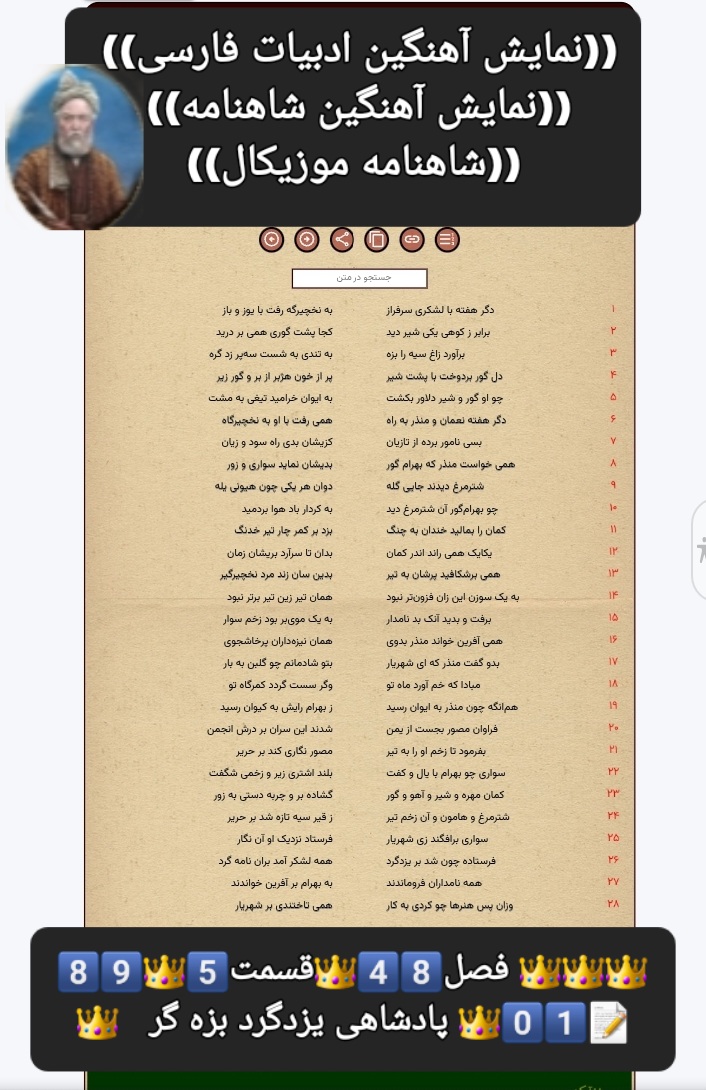 ((نمایش آهنگین ادبیات فارسی))
((نمایش آهنگین شاهنامه))
((شاهنامه موزیکال))
جستجو در متن
۱ دگر هفته با لشکری سرفراز به نخچیرگه رفت با یوز و باز
۲ برابر ز کوهی یکی شیر دید کجا پشت گوری همی بر درید
۳ برآورد زاغ سیه را بزه به تندی به شست سه‌پر زد گره
۴ دل گور بردوخت با پشت شیر پر از خون هژبر از بر و گور زیر
۵ چو او گور و شیر دلاور بکشت به ایوان خرامید تیغی به مشت
۶ دگر هفته نعمان و منذر به راه همی رفت با او به نخچیرگاه
۷ بسی نامور برده از تازیان کزیشان بدی راه سود و زیان
۸ همی خواست منذر که بهرام گور بدیشان نماید سواری و زور
۹ شترمرغ دیدند جایی گله دوان هر یکی چون هیونی یله
۱۰ چو بهرام‌گور آن شترمرغ دید به کردار باد هوا بردمید
۱۱ کمان را بمالید خندان به چنگ بزد بر کمر چار تیر خدنگ
۱۲ یکایک همی راند اندر کمان بدان تا سرآرد بریشان زمان
۱۳ همی برشکافید پرشان به تیر بدین سان زند مرد نخچیرگیر
۱۴ به یک سوزن این زان فزون‌تر نبود همان تیر زین تیر برتر نبود
۱۵ برفت و بدید آنک بد نامدار به یک موی‌بر بود زخم سوار
۱۶ همی آفرین خواند منذر بدوی همان نیزه‌داران پرخاشجوی
۱۷ بدو گفت منذر که ای شهریار بتو شادمانم چو گلبن به بار
۱۸ مبادا که خم آورد ماه تو وگر سست گردد کمرگاه تو
۱۹ هم‌انگه چون منذر به ایوان رسید ز بهرام رایش به کیوان رسید
۲۰ فراوان مصور بجست از یمن شدند این سران بر درش انجمن
۲۱ بفرمود تا زخم او را به تیر مصور نگاری کند بر حریر
۲۲ سواری چو بهرام با یال و کفت بلند اشتری زیر و زخمی شگفت
۲۳ کمان مهره و شیر و آهو و گور گشاده بر و چربه دستی به زور
۲۴ شترمرغ و هامون و آن زخم تیر ز قیر سیه تازه شد بر حریر
۲۵ سواری برافگند زی شهریار فرستاد نزدیک او آن نگار
۲۶ فرستاده چون شد بر یزدگرد همه لشکر آمد بران نامه گرد
۲۷ همه نامداران فروماندند به بهرام بر آفرین خواندند
۲۸ وزان پس هنرها چو کردی به کار همی تاختندی بر شهریار
👑👑👑 فصل 4️⃣8️⃣👑قسمت5️⃣👑8️⃣9️⃣
📝0️⃣1️⃣👑 پادشاهی یزدگرد بزه گر 👑